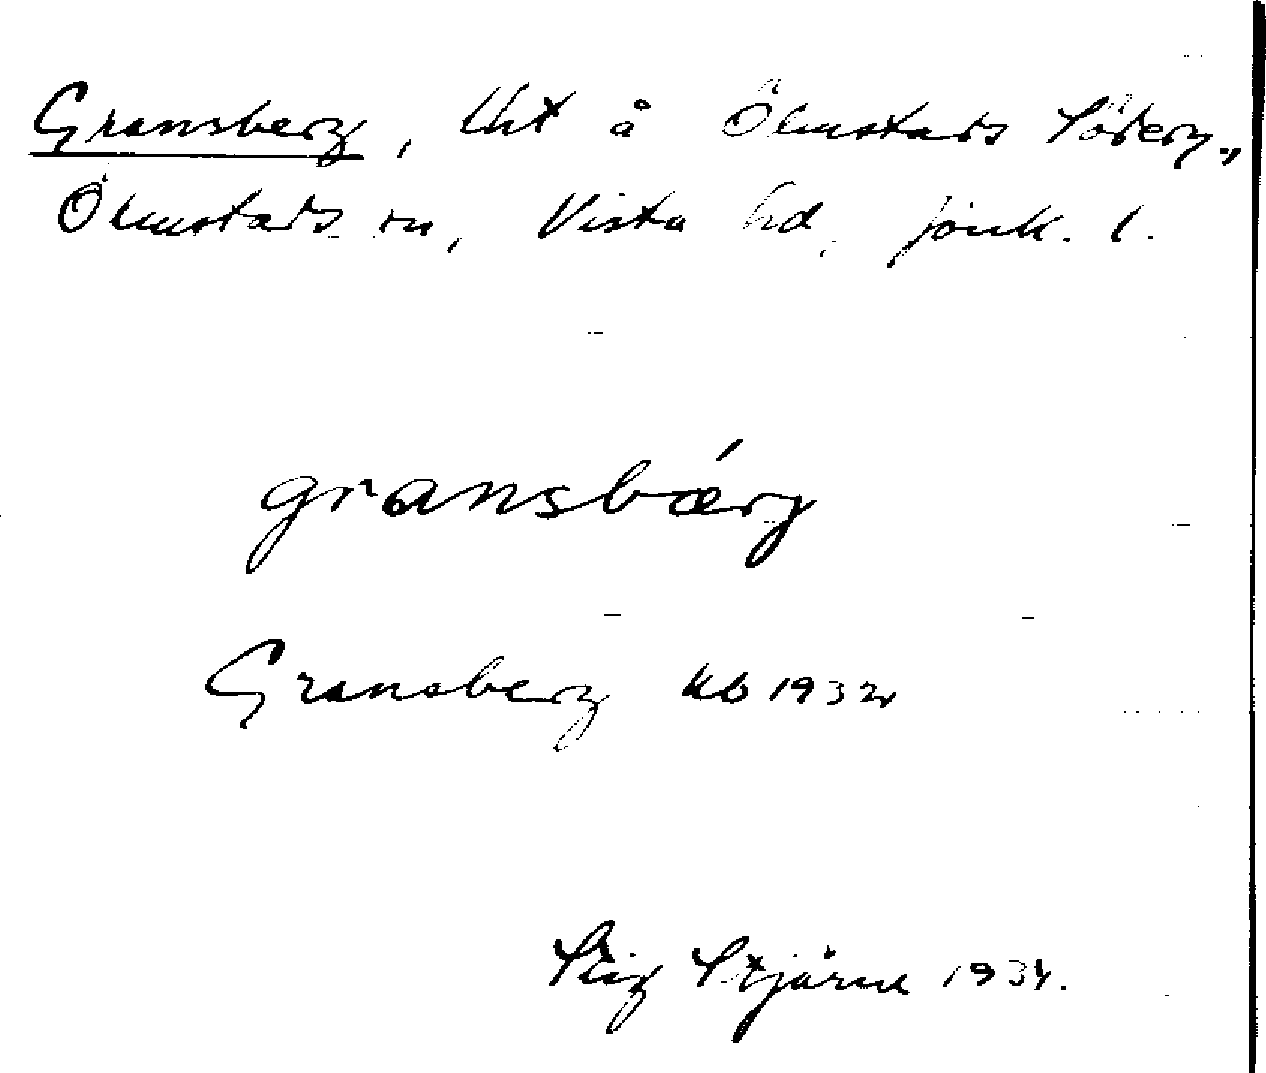 Gransberg, lht å Ölmstads Söderg.,
Ölmstads sn, Vista hd, Jönk. l.
gransbǽrg
Gransberg kb 1932
Stig Stjärne 1934.